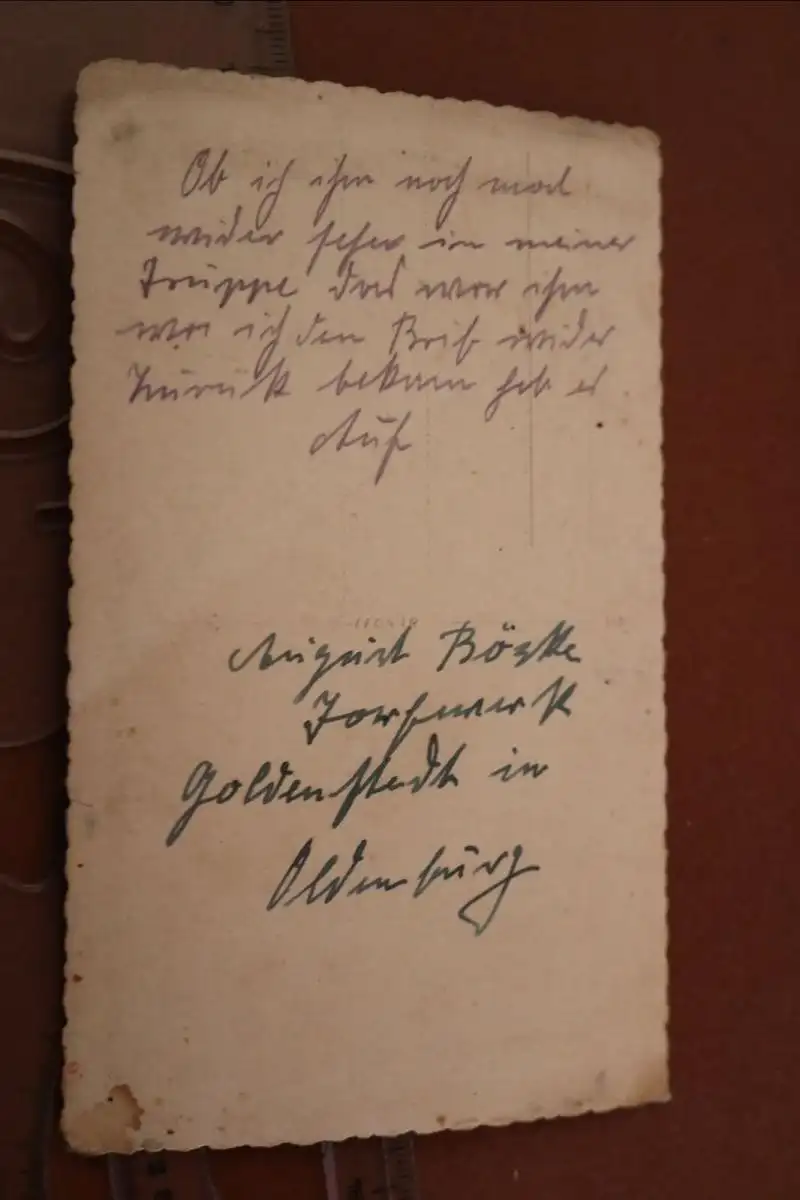 Ob ich ihn noch mal
wider sehe in meiner
Truppe das war ihn
wo ich den Brif wider
Zurück bekam heb es
Auf
August
Torfwerk
Goldenstedt in
Oldenburg